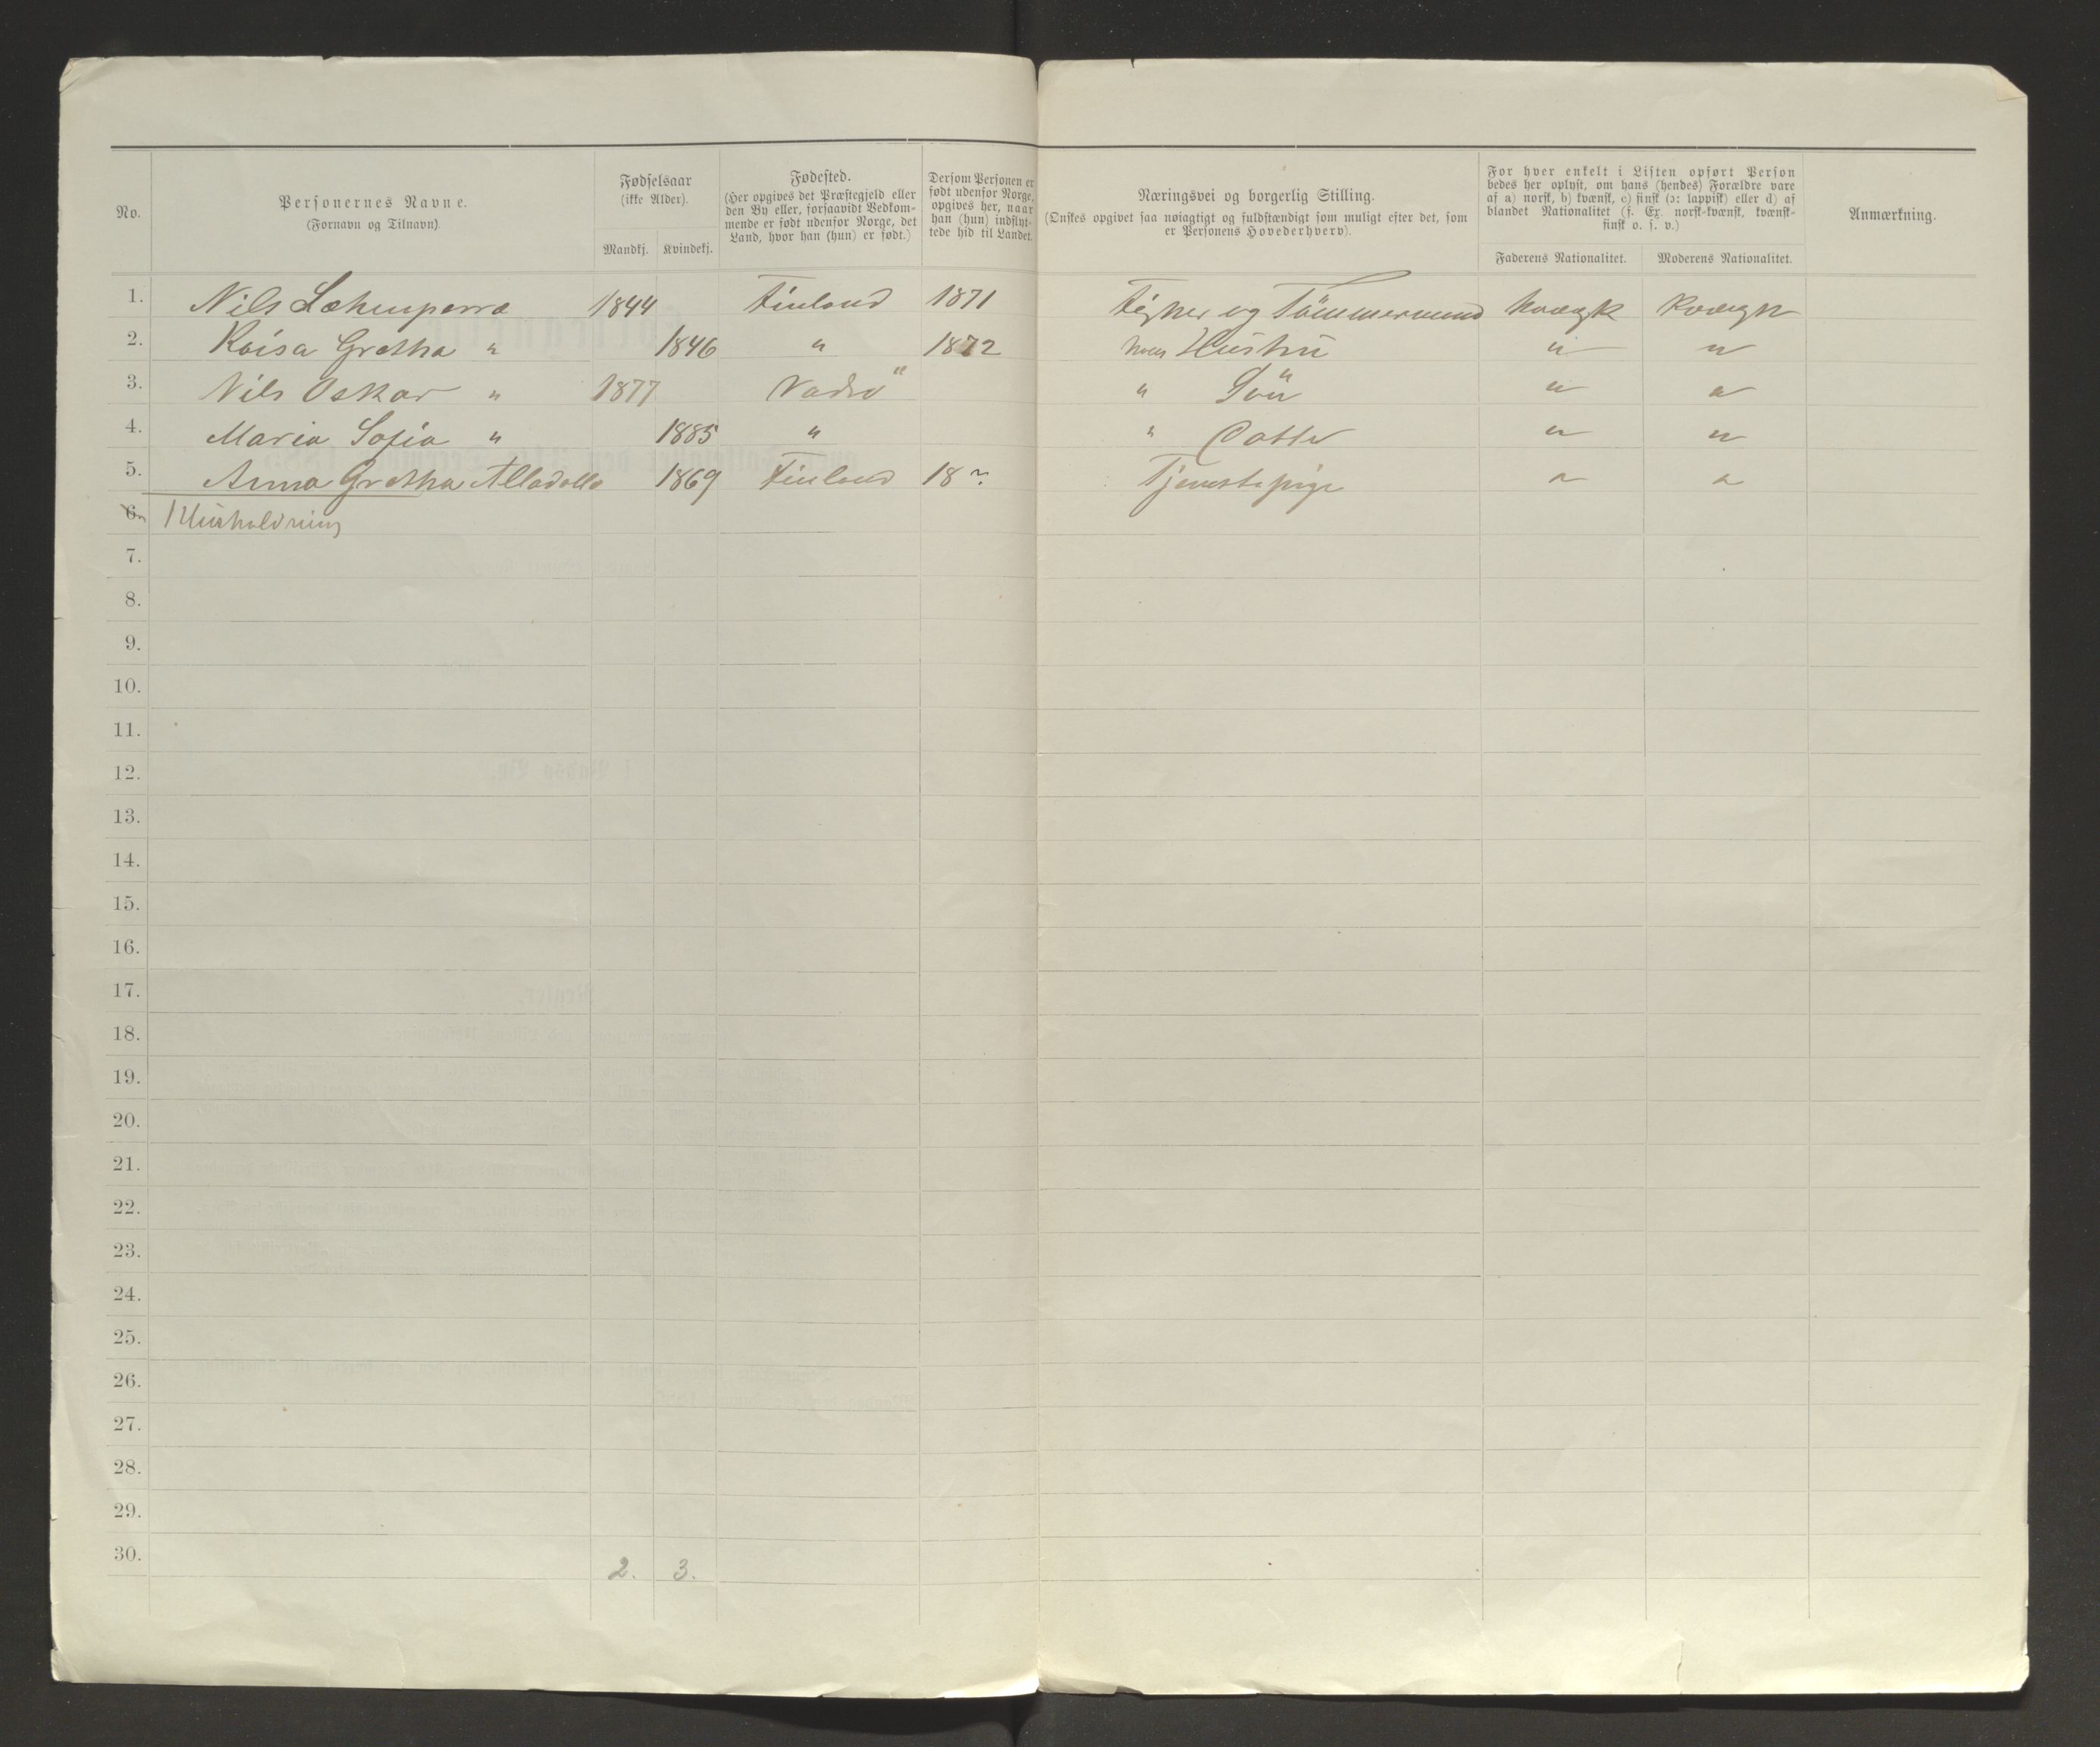 No.
Personernes Navne.
(Fornavn og Tilnavn).
Fødselsaar
(ikke Alder).
Mandkj. Kvindekj.
Fødested.
(Her opgives det Præstegjeld eller
den By eller, forsaavidt Vedkom-
mende er født udenfor Norge, det
Land, hvor han (hun) er født.)
Dersom Personen er
født udenfor Norge,
opgives her, naar
han (hun) indflyt-
tede hid til Landet.
Næringsvei og borgerlig Stilling.
(Ønskes opgivet saa nøiagtigt og fuldstændigt som muligt efter det, som
er Personens Hovederhverv).
For hver enkelt i Listen opført Person
bedes her oplyst, om hans (hendes) Forældre vare
af a) norsk, b) kvænsk, c) finsk (ɔ: lappisk) eller d) af
blandet Nationalitet (f. Ex. norsk-kvænsk, kvænsk-
finsk o. s. v.)
Faderens Nationalitet. Moderens Nationalitet.
Anmærkning.
1. Nils 1844 Finland 1871 Fisker og Tömmermand kvægsk kvægsk
2. Kaisa Gretha " 1846 " 1872 hans Hustru " "
3. Nils Oskar " 1877 Vadsö " Sön " "
4. Maria Sofia " 1885 " " Datter " "
5. Anna Gretha 1869 Finland 18 ? Tjenestepige " "
6. 1 Husholdning
7.
8.
9.
10.
11.
12.
13.
14.
15.
16.
17.
18.
19.
20.
21.
22.
23.
24.
25.
26.
27.
28.
29.
30.
2. 3.